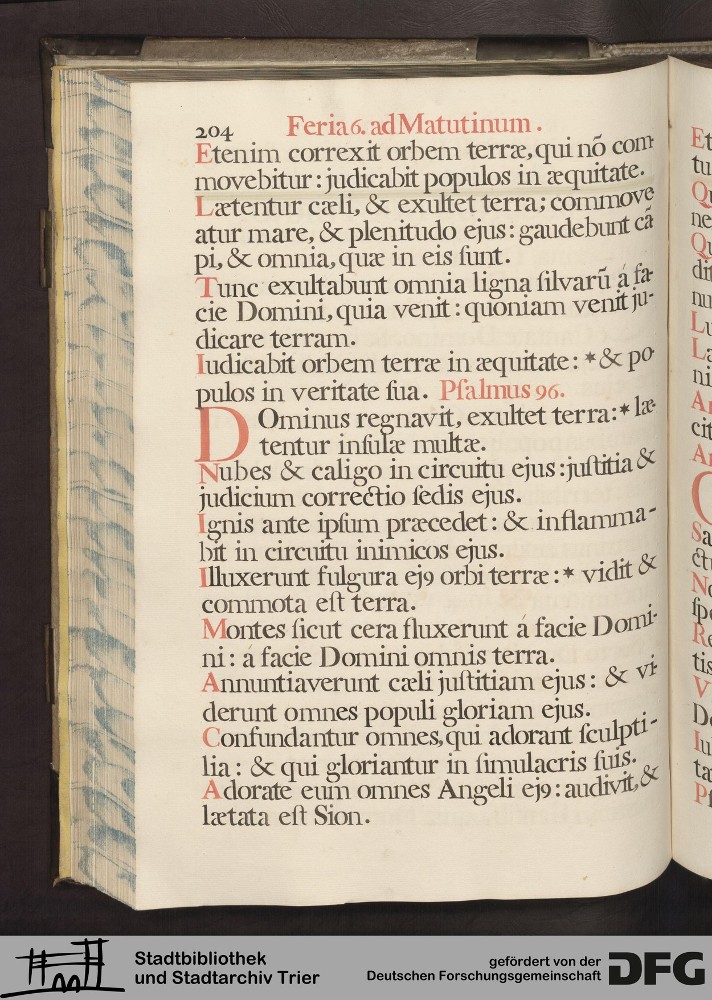 204 Feria 6. ad Matutinum.
Etenim correxit orbem terræ, qui nõ com-
movebitur: judicabit populos in æquitate.
Lætentur cæli, & exultet terra; commove
atur mare, & plenitudo ejus: gaudebunt cã
pi, & omnia, quæ in eis ſunt.
Tunc exultabunt omnia ligna ſilvarũ á fa-
cie Domini, quia venit: quoniam venit ju-
dicare terram.
Iudicabit orbem terræ in æquitate: * & po-
pulos in veritate ſua. Pſalmus 96.
DOminus regnavit, exultet terra: * læ-
tentur inſulæ multæ.
Nubes & caligo in circuitu ejus: juſtitia &
judicium correctio ſedis ejus.
Ignis ante ipſum præcedet: & inflamma-
bit in circuitu inimicos ejus.
Illuxerunt fulgura ej9 orbi terræ: * vidit &
commota eſt terra.
Montes ſicut cera fluxerunt á facie Domi-
ni: á facie Domini omnis terra.
Annuntiaverunt cæli juſtitiam ejus: & vi-
derunt omnes populi gloriam ejus.
Confundantur omnes, qui adorant ſculpti-
lia: & qui gloriantur in ſimulacris ſuis.
Adorate eum omnes Angeli ej9: audivit, &
lætata eſt Sion.
Stadtbibliothek
und Stadtarchiv Trier
gefördert von der
Deutschen Forschungsgemeinschaft
DFG